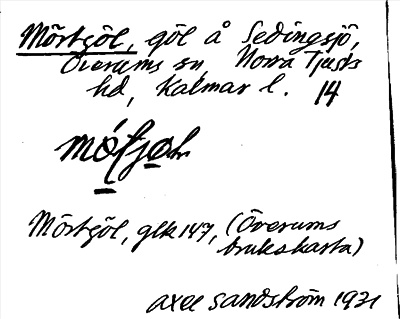 Mörtgöl, göl å Sedingsjö,
Överums sn, Norra Tjusts
hd, Kalmar l. 14
Mörtgöl, glk 147, (Överums
brukskarta)
Axel Sandström 1931